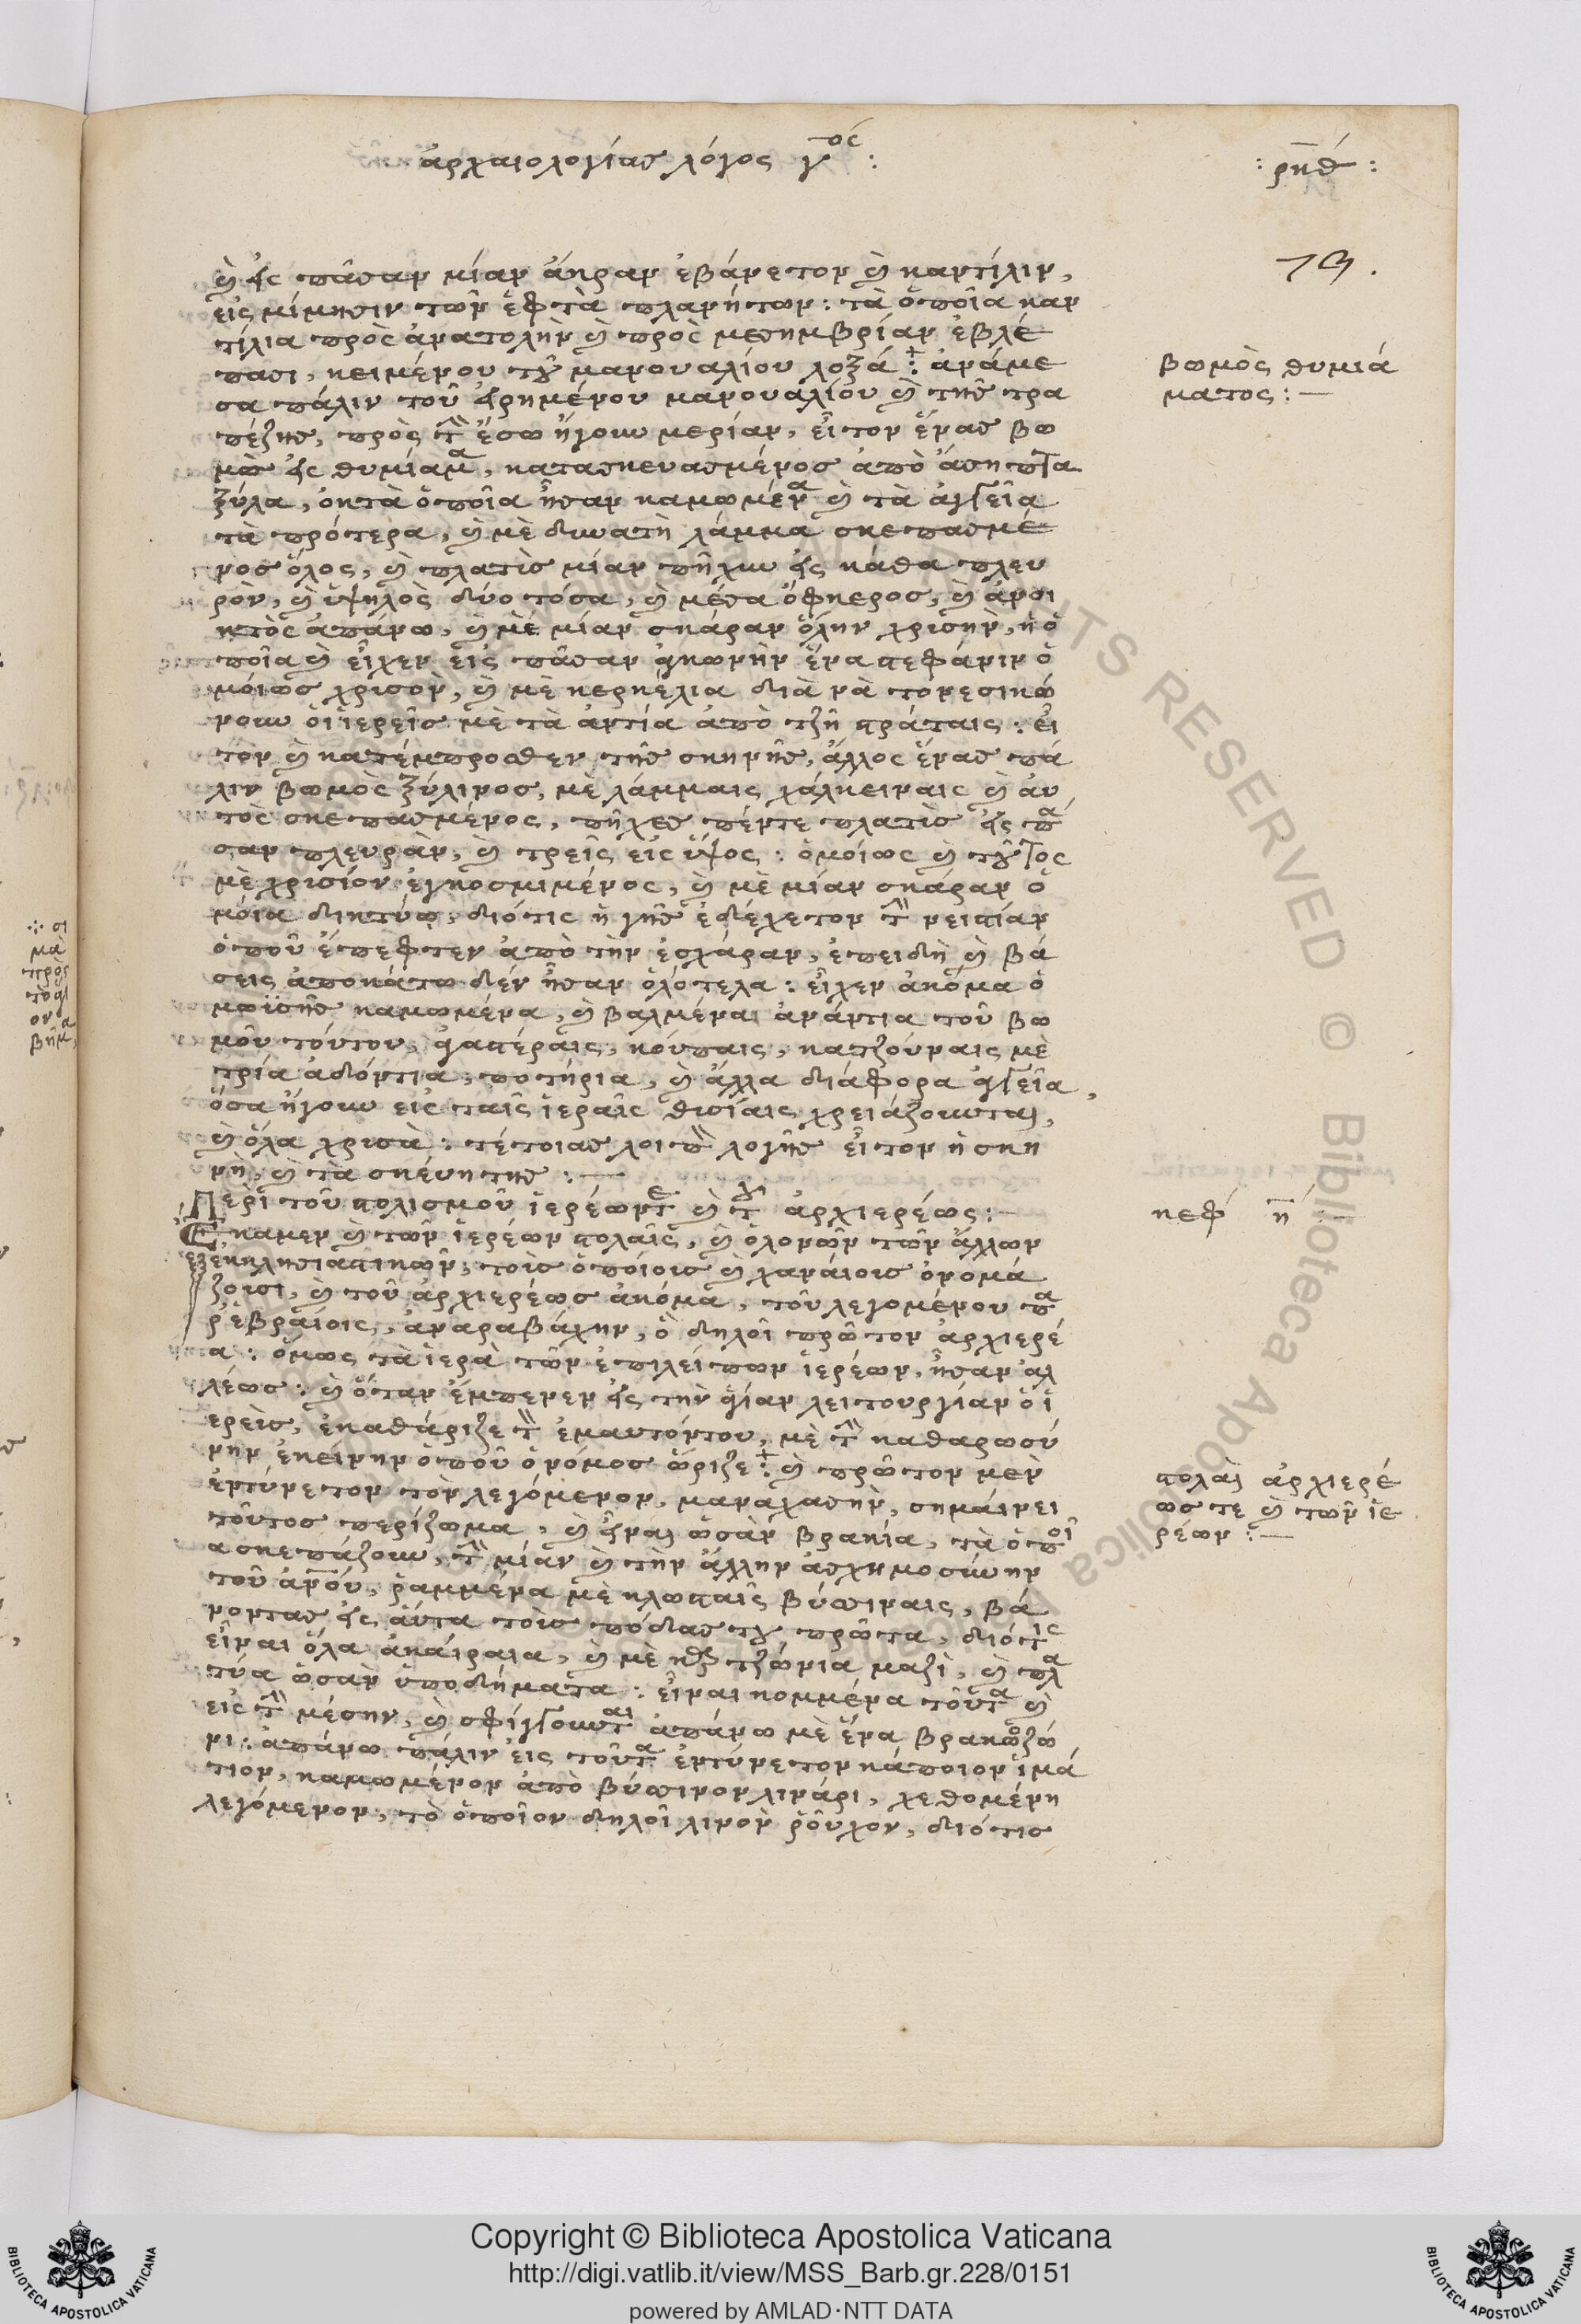 ἀρχαιολογίας λόγος γ´ος :
: ρηθ´ :
79.
καὶ εἰς πᾶσαν μίαν ἄκραν ἐβάνετον καὶ καντίλιν,
εἰς μίμησιν τῶν ἑφτὰ πλανήτων : τὰ ὁποῖα καν
τίλια πρὸς ἀνατολὴν καὶ πρὸς μεσημβρίαν ἐβλέ
πασι, κειμένου τοῦ μανουαλίου λοξά : ἀνάμε
σα πάλιν τοῦ εἰρημένου μανουαλίου καὶ τῆς τρα
πέζης, πρὸς τὴν ἔσω ἤγουν μερίαν, εἶτον ἕνας βω
μὸς εἰς θυμίαμα, κατασκευασμένος ἀπὸ ἄσηπτα
ξύλα, ὀκτὰ ὁποῖα ἦσαν καμωμένα καὶ τὰ ἀγγεῖα
τὰ πρότερα, καὶ μὲ δυνατὴ λάμμα σκεπασμέ
νος ὅλος, καὶ πλατὶς μίαν πῆχυν εἰς κάθα πλευ
ρὸν, καὶ ὑψηλὸς δύο τόσα, καὶ μέσα ὄφκερος, καὶ ἀνοι
κτὸς ἀπάνω, καὶ μὲ μίαν σκάραν ὅλην χρισὴν, ἡ ὁ
ποῖα καὶ εἶχεν εἰς πᾶσαν ἀγκωνὴν ἕνα στεφάνιν ὁ
μοίως χρισὸν, καὶ μὲ κερκέλια διὰ νὰ τονεσικώ
νουν οἱ ἱερεῖς μὲ τὰ ἀντία ἀπὸ τζῆ στράταις : εἶ
τον καὶ κατέμπροσθεν τῆς σκηνῆς, ἄλλος ἕνας πά
λιν βωμὸς ξύλινος, μὲ λάμμαις χάλκειναις καὶ αὐ
τὸς σκεπασμένος, πῆχες πέντε πλατὶς εἰς πᾶ
σαν πλευρὰν, καὶ τρεῖς εἰς ὕψος : ὁμοίως καὶ τοῦτος
μὲ χρισίον ἐγκοσμιμένος, καὶ μὲ μίαν σκάραν ὁ
μόια δικτύῳ, διότις ἡ γῆς ἐδέχετον τὴν στίαν
ὁποῦ ἔπεφτεν ἀπὸ τὴν ἐσχάραν, ἐπειδὴ καὶ βά
σεις ἀποκάτω δὲν ἦσαν ὁλότελα : εἶχεν ἀκόμα ὁ
μωϊσῆς καμωμένα, καὶ βαλμέναι ἀνάντια τοῦ βω
μοῦ τούτου, γαστέραις, κούπαις, κατζούναις μὲ
τρία ἀδόντια, ποτήρια, καὶ ἄλλα διάφορα ἀγγεῖα,
ὅσα ἤγουν εἰς ταῖς ἱεραῖς θυσίαις χρειάζουνται,
καὶ ὅλα χρυσὰ : τέτοιας λοιπὸν λογῆς εἶτον ἡ σκη
νὴ, καὶ τὰ σκεύητης : —
Περὶ τοῦ στολισμοῦ ἱερέων τε καὶ τοῦ ἀρχιερέως : —
Ἔκαμεν καὶ τῶν ἱερέων στολαῖς, καὶ ὁλονῶν τῶν ἄλλων
ἐκκλησιαστικῶν, τοὺς ὁποίους καὶ χαναίους ὀνομά
ζουσι, καὶ τοῦ ἀρχιερέως ἀκόμα, τοῦ λεγομένου πα
ρ᾽ ἑβραίοις, ἀναραβάχην, ὃ δηλοῖ πρῶτον ἀρχιερέ
α : ὅμως τὰ ἱερὰ τῶν ἐπιλείπων ἱερέων, ἦσαν ἀλ
λέως : καὶ ὅταν ἔμπενεν εἰς τὴν ἁγίαν λειτουργίαν ὁ ἱ
ερεὶς, ἐκαθάριζε τὸν ἐμαυτόντου, μὲ τὴν καθαρωσύ
νην ἐκείνην ὁποῦ ὁ νόμος ὥριζε : καὶ πρῶτον μὲν
ἐντύνετον τὸν λεγόμενον, μαναχασὴν, σημαίνει
τοῦτος περίζωμα, καὶ εἶναι ὡσὰν βρακία, τὰ ὁποῖ
α σκεπάζουν, τὴν μίαν καὶ τὴν ἄλλην ἀσχημοσύνην
τοῦ ἀνοῦ, ῥαμμένα μὲ κλωσταῖς βύσιναις, βά
νοντας εἰς αὐτὰ τοὺς πόδας του πρῶτα, διότις
εἶναι ὅλα ἀκαίραια, καὶ μὲ τζώνια μαζὶ, καὶ πλα
τύα ὡσὰν ὑποδήματα : εἶναι κομμένα τοῦτα καὶ
εἰς τὴν μέσην, καὶ σφίγγουνται ἀπάνω μὲ ἕνα βρακοζώ
νι : ἀπάνω πάλιν εἰς τοῦτα ἐντύνετον κάποιον ἱμά
τιον, καμωμένον ἀπὸ βύσινον λινάρι, χεθομένη
λεγόμενον, τὸ ὁποῖον δηλοῖ λινὸν ῥοῦχον, διότις
βωμὸς θυμιά
ματος : —
κεφ´ η´ : —
στολαὶ ἀρχιερέ
ως τε καὶ τῶν ἱε
ρέων : —
Copyright © Biblioteca Apostolica Vaticana
http://digi.vatlib.it/view/MSS_Barb.gr.228/0151
powered by AMLAD·NTT DATA
BIBLIOTECA APOSTOLICA VATICANA
BIBLIOTECA APOSTOLICA VATICANA